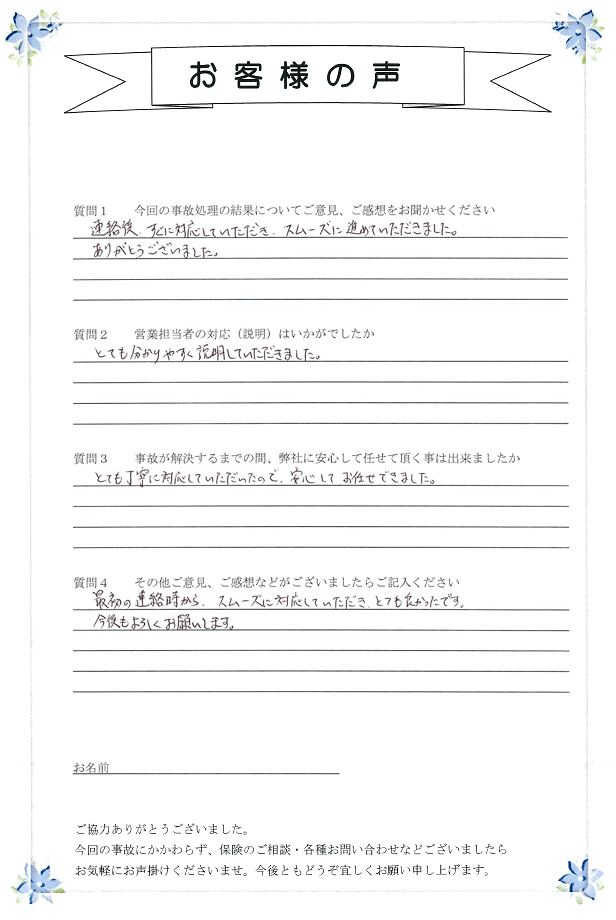 お客様の声
質問１　今回の事故処理の結果についてご意見、ご感想をお聞かせください
連絡後、すぐに対応していただき、スムーズに進めていただきました。
ありがとうございました。
質問２　営業担当者の対応（説明）はいかがでしたか
とても分かりやすく説明していただきました。
質問３　事故が解決するまでの間、弊社に安心して任せて頂く事は出来ましたか
とても丁寧に対応していただいたので、安心してお任せできました。
質問４　その他ご意見、ご感想などがございましたらご記入ください
最初の連絡時から、スムーズに対応していただき、とても良かったです。
今後もよろしくお願いします。
お名前
ご協力ありがとうございました。
今回の事故にかかわらず、保険のご相談・各種お問い合わせなどございましたら
お気軽にお声掛けくださいませ。今後ともどうぞ宜しくお願い申し上げます。